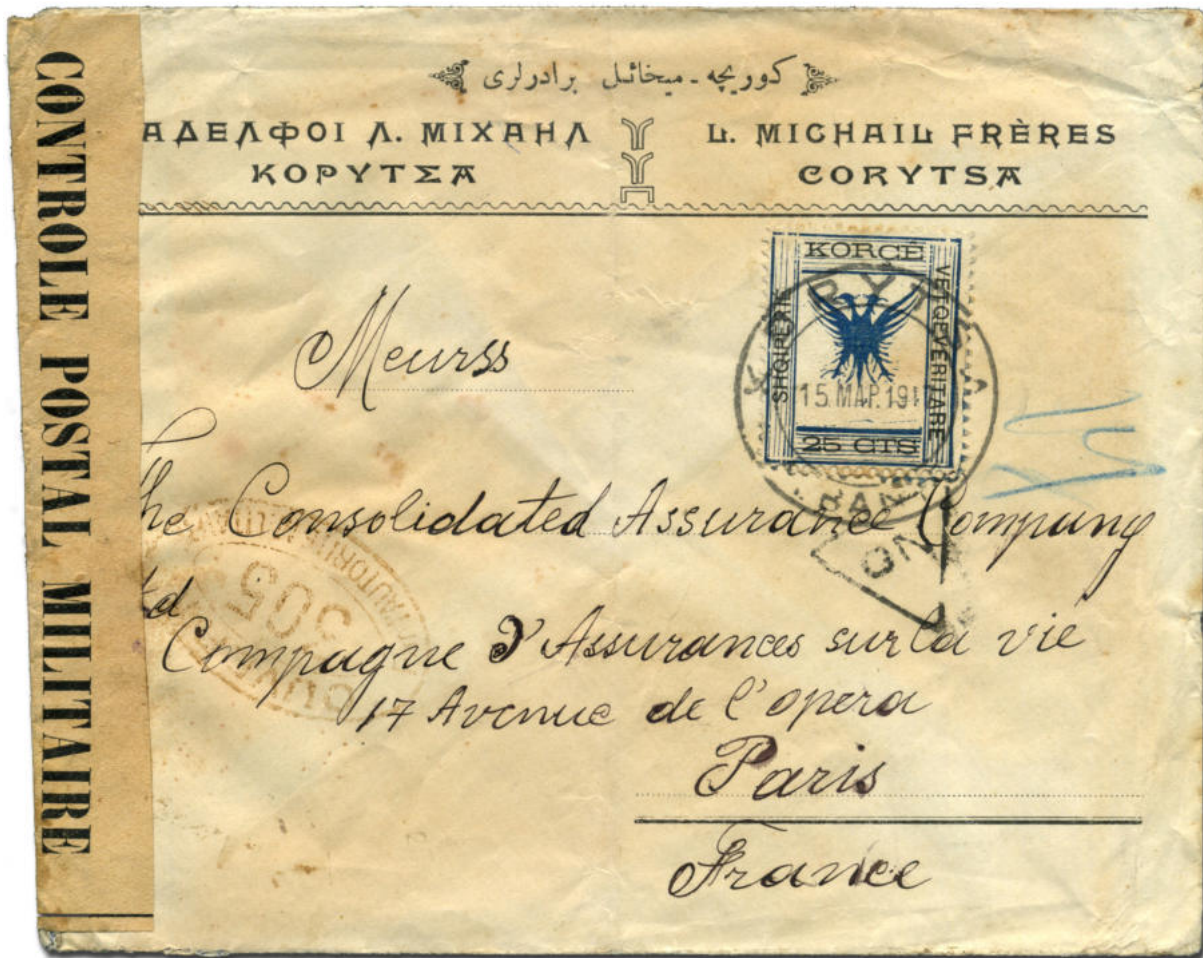 CONTROLE POSTAL MILITAIRE
كوريچه - ميخائيل برادرلرى
ΑΔΕΛΦΟΙ Λ. ΜΙΧΑΗΛ
ΚΟΡΥΤΣΑ
L. MICHAIL FRÈRES
CORYTSA
KORCË
SHQIPËRIE
VETQEVERITARE
25 CTS
15 ΜΑΡ. 1917
Meurss
The Consolidated Assurance Company
Ltd
305
Compagne d'Assurances sur la vie
17 Avenue de l'opera
Paris
France